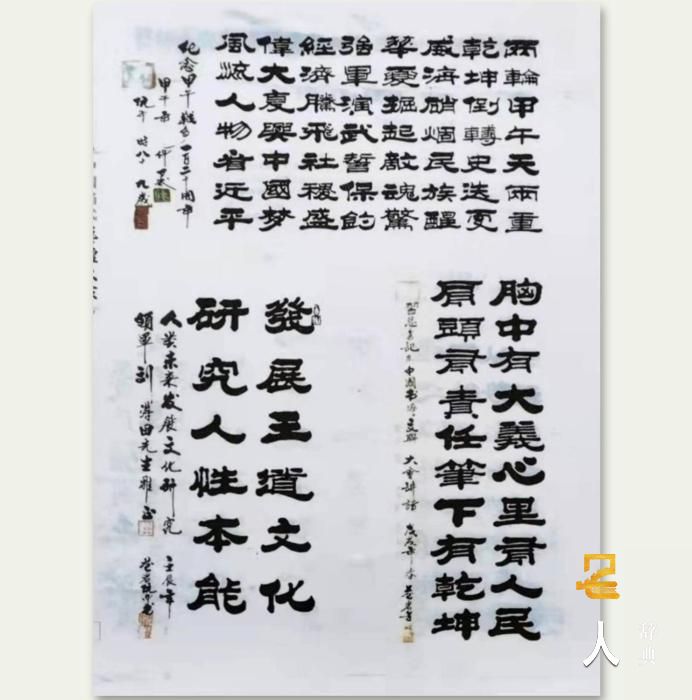 兩輪甲午天兩重
乾坤倒轉史迭更
威海硝烟民族醒
華夏掘起敵魂驚
強軍演武誓保釣
經濟騰飛社稷盛
偉大复興中國夢
風流人物看近平
纪念甲午戰争一百二十周年
甲午年
時八十九歲
胸中有大義心里有人民
肩頭有責任筆下有乾坤
大會講話 戊戌年春
發展王道文化
研究人性本能
人类未来发展文化研究
領軍刘 田先生雅正
壬辰年
名人
辞典